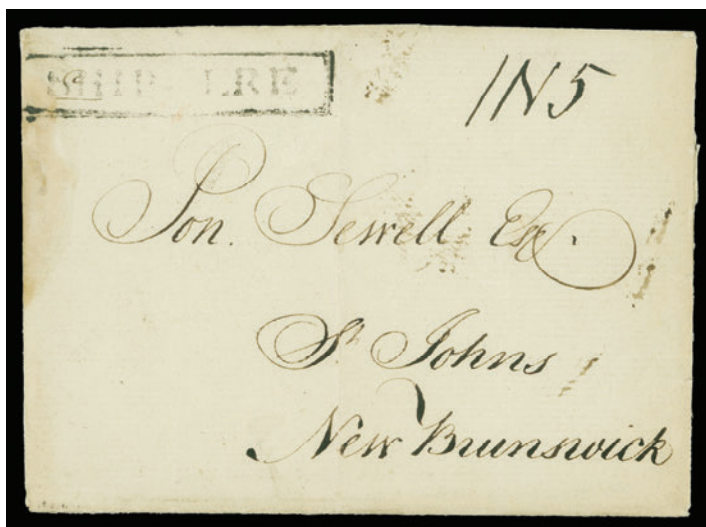 SHIP LRE
1N5
Jon. Sewell Esq.
St Johns
New Brunswick